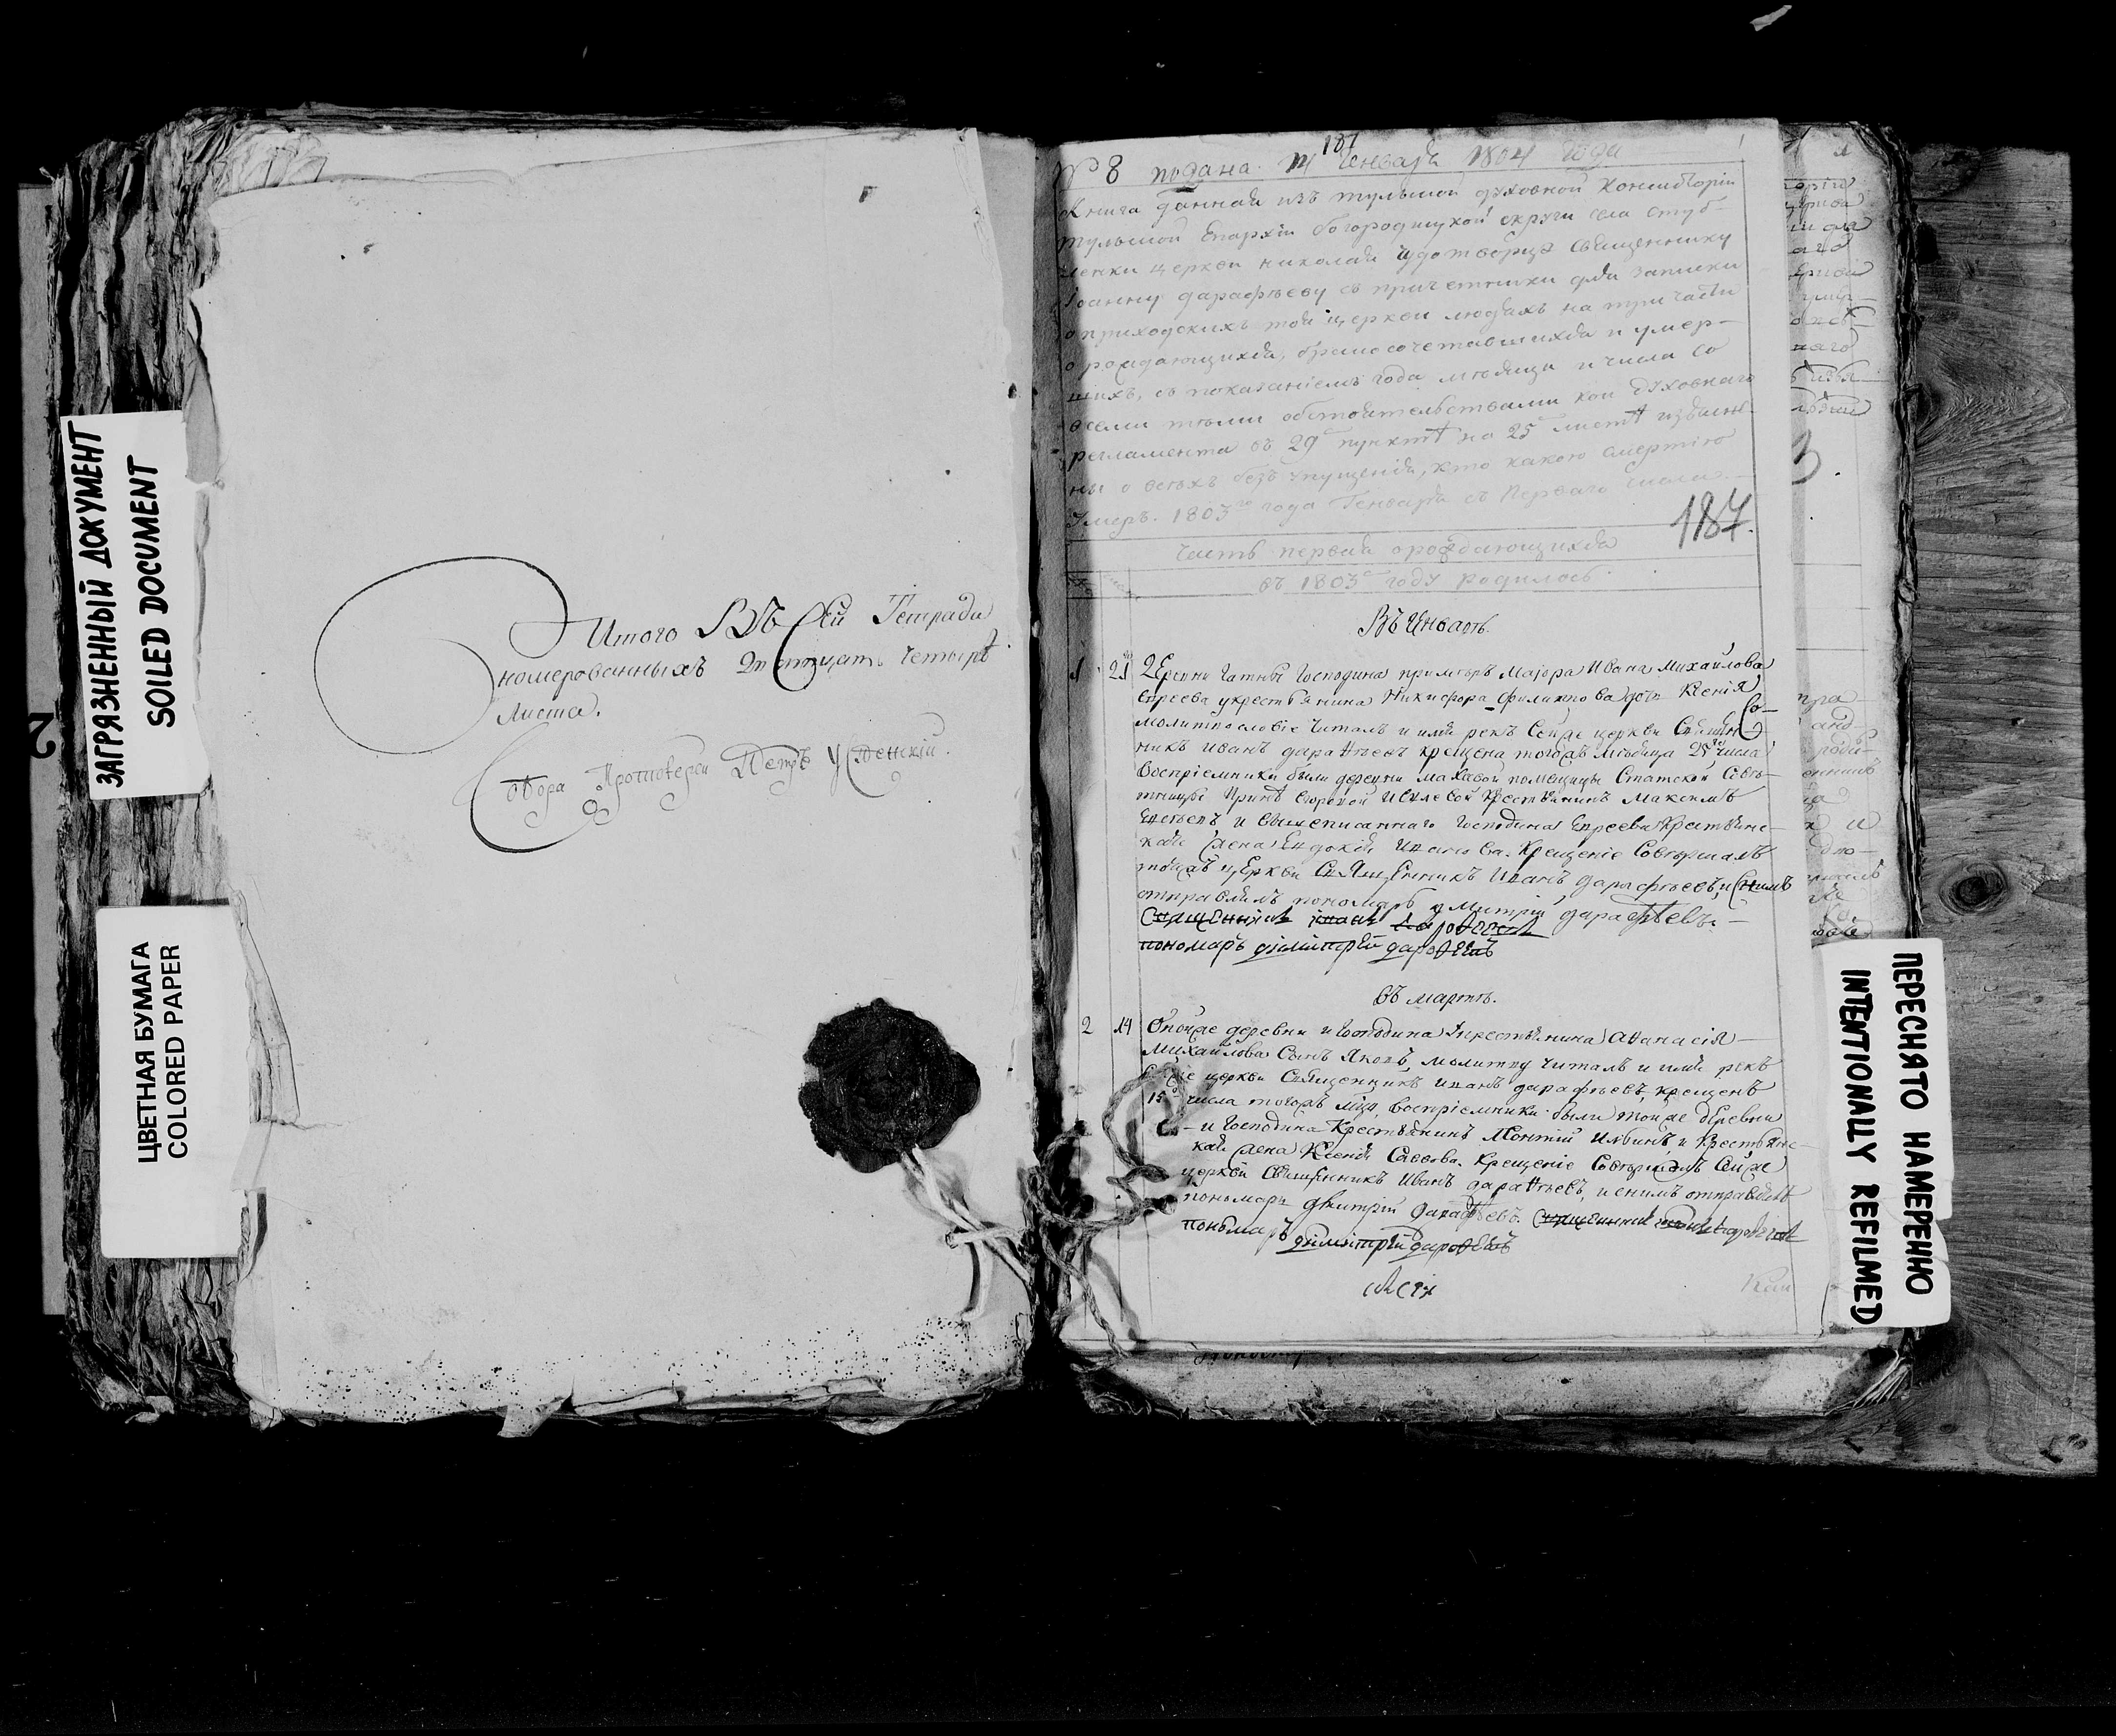 ЗАГРЯЗНЕННЫЙ ДОКУМЕНТ
SOILED DOCUMENT
ЦВЕТНАЯ БУМАГА
COLORED PAPER
2
Итого Въ Сей Тетради
номерованныхъ Двадцать четыре
листа.
Протоиерей Петръ Успенскій.
187
№ 8 подана 14 Генваря 1804 года
Книга данная изъ тульской духовной Консисторіи
тульской Епархіи богородицкой округи села Стуб-
ленки церкви николая чудотворца Священнику
Іоанну дарафѣеву съ причетники для записки
о приходскихъ той церкви людяхъ на три части
о рождающихся, бракосочетавшихся и умер-
шихъ, съ показаніемъ года мѣсяца и числа со
всеми тѣми обстоятельствами кои Духовнаго
регламента въ 29 пунктѣ на 25 листѣ изъясне-
ны о всѣхъ безъ упущенія, кто какою смертію
Умеръ. 1803го года Генваря съ Перваго числа
187.
Часть первая о рождающихся
въ 1803 году родилось
Въ Инварѣ.
1 21 Деревни Господина примеръ Маіора Ивана Михайлова
Евреева у крестьянина Никифора Филипова дочь Ксенія
молитвословіе Читалъ и имя рекъ Сей же церкви Священ-
никъ Иванъ дарафѣевъ крещена тогожъ мѣсяца 25 числа
Воспріемники были деревни помещицы Статской Совѣ-
тницы Крестьянинъ Максимъ
и вышеписаннаго Господина Евреева Крестьянс-
кая жена Евдокія Иванова. Крещеніе Совершалъ
тойжъ церкви Священникъ Иванъ дарафѣевъ, и снимъ
отправлялъ пономарь дмитрій дарафѣевъ.
Священникъ іоанъ дарофѣевъ
пономарь димитрій дарофѣевъ
Въ мартѣ.
2 14 Онойже деревни и Господина Укрестьянина Аѳанасія
Михайлова Сынъ Яковъ, молитву Читалъ и имя рекъ
церкви Священникъ иванъ дарафѣевъ, крещенъ
15 числа тогожъ мца, воспріемники были тойже деревни
и Господина Крестьянинъ и Крестьянс-
кая жена Ксенія Савова. Крещеніе Совершалъ Сейже
церкви Священникъ Иванъ дарафѣевъ, и снимъ отправлялъ
пономарь дмитрій дарафѣевъ. Священникъ
пономарь димитрій дарофѣевъ
ПЕРЕСНЯТО НАМЕРЕННО
INTENTIONALLY REFILMED